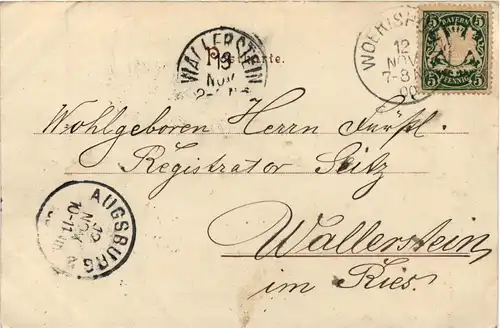 Postkarte.
WALLERSTEIN
13
NOV
WOERISH
12
NOV
7-8
00
5 BAYERN 5
5 PFENNIG 5
Wohlgeboren Herrn Fürstl.
Registrator Seitz
Wallerstein
im Ries.
AUGSBURG 2
12
NOV
10-11